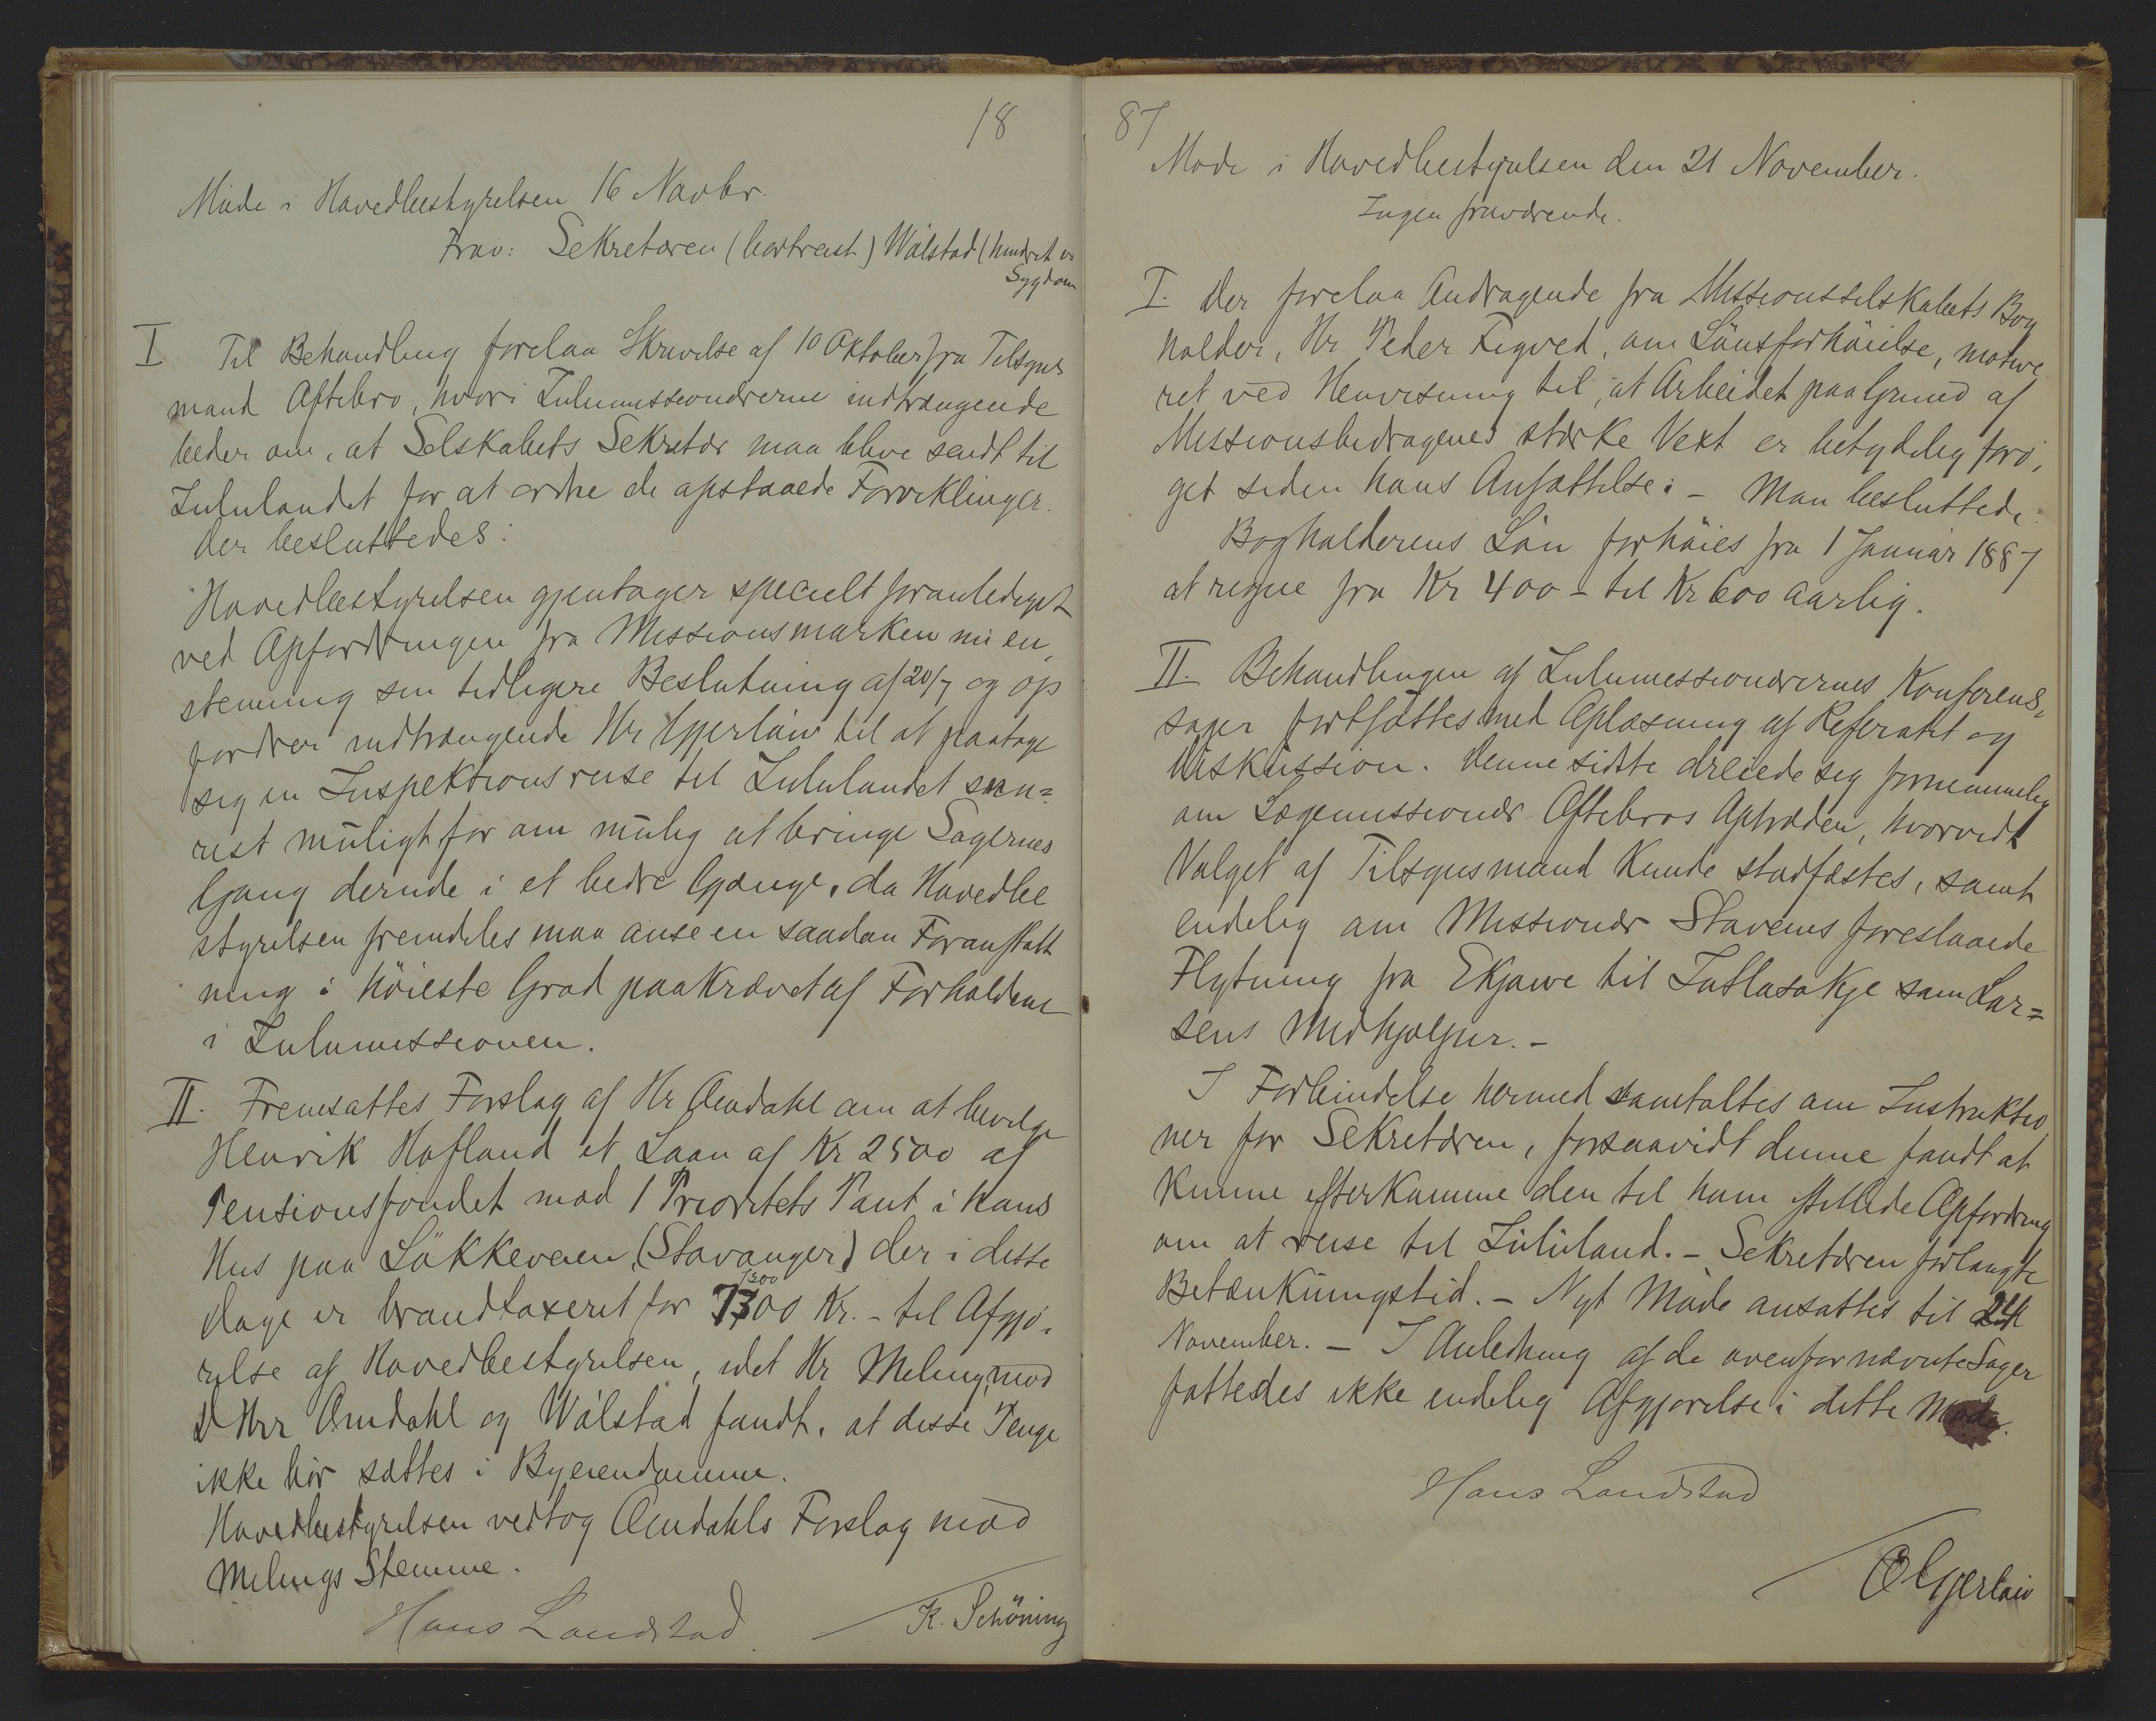 18
Møde i Hovedbestyrelsen 16 Novbr.
Frav: Sekretæren (bortreist) Wålstad (hindret v.
Sygdom
I Til Behandling forelaa Skrivelse af 10 Oktober fra Tilsyns
mand Oftebro, hvori Zulumissionærerne indtrængende
beder om, at Selskabets Sekretær maa blive sendt til
Zululandet for at ordne de opstaaede Forviklinger.
Der besluttedes:
Hovedbestyrelsen gjentager specielt foranlediget
ved Opfordringen fra Missionsmarken nu en,
stemmig sin tidligere Beslutning af 20/7 og op
fordrer indtrængende Hr Gjerløw til at paatage
sig en Inspektionsreise til Zululandet sna=
rest muligt for om mulig at bringe Sagernes
Gang derude i et bedre Gjænge, da Hovedbe
styrelsen fremdeles maa anse en saadan Foranstalt
ning i høieste Grad paakrævet af Forholdene
i Zulumissionen.
II. Fremsattes Forslag af Hr Amdahl om at bevilge
Henrik Hafland et Laan af Kr 2500 af
Pensionsfondet mod 1 Prioritets Pant i hans
Hus paa Løkkeveien, (Stavanger) der i disse
7300
Dage er brandtaxeret for 7300 Kr. - til Afgjø,
relse af Hovedbestyrelsen, idet Hr Meling, mod
D'Hrr Amdahl og Wålstad fandt, at disse Penge
ikke bør sættes i Byeiendomme.
Hovedbestyrelsen vedtog Amdahls Forslag mod
Melings Stemme.
Hans Landstad K. Schöning
87
Møde i Hovedbestyrelsen den 21 November.
Ingen fraværende.
I. Der forelaa Andragende fra Missionsselskabets Bog
holder, Hr. Peder Figved, om Lønsforhøielse, motive
ret ved Henvisning til, at Arbeidet paa Grund af
Missionsbidragenes stærke Vext er betydelig forø,
get siden hans Ansættelse. - Man besluttede:
Bogholderens Løn forhøies fra 1 Januar 1887
at regne fra Kr 400 - til Kr 600 aarlig.
II. Behandlingen af Zulumissionærernes Konferens,
sager fortsattes med Oplæsning af Referatet og
Diskussion. Denne sidste dreiede sig fornemmelig
om Lægemissionær Oftebros Optræden, hvorvidt
Valget af Tilsynsmand kunde stadfæstes, samt
endelig om Missionær Stavems foreslaaede
Flytning fra Ekjowe til Intlasakje som Lar=
sens Medhjælper. -
I Forbindelse hermed samtaltes om Instruktio
ner for Sekretæren, forsaavidt denne fandt at
kunne efterkomme den til ham stillede Opfordring
om at reise til Zululand. - Sekretæren forlangte
Betænkningstid. - Nyt Møde ansattes til 24
November. - I Anledning af de ovenfor nævnte Sager
fattedes ikke endelig Afgjørelse i dette Møde.
Hans Landstad
O Gjerløw